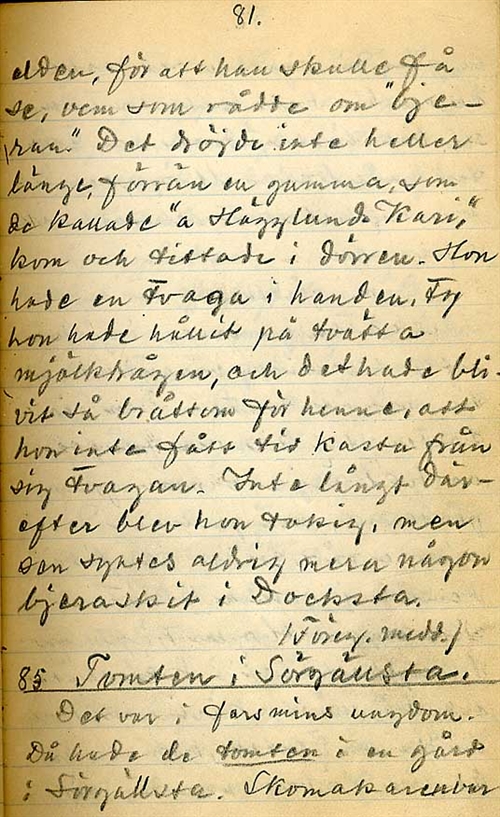 81.
elden, för att han skulle få
se, vem som rådde om "bje-
ran." Det dröjde inte heller
länge, förrän en gumma, som
de kallade "a Hägglunds Kari,"
kom och tittade i dörren. Hon
hade en tvaga i handen. Ty
hon hade hållit på tvätta
mjölktrågen, och det hade bli-
vit så bråttom för henne, att
hon inte fått tid kasta från
sig tvagan. Inte långt där-
efter blev hon tokig, men
sen syntes aldrig mera någon
bjeraskit i Docksta.
/Föreg. medd./
85 Tomten i Sörgällsta.
Det var i fars mins ungdom.
Då hade de tomten i en gård
i Sörgällsta. Skomakaren var